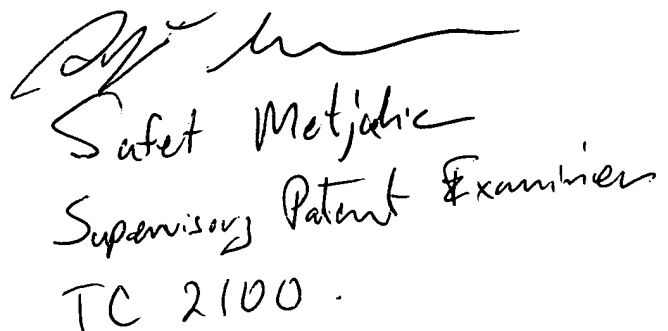 Safet Metjahic
Supervisory Patent Examiner
TC 2100.